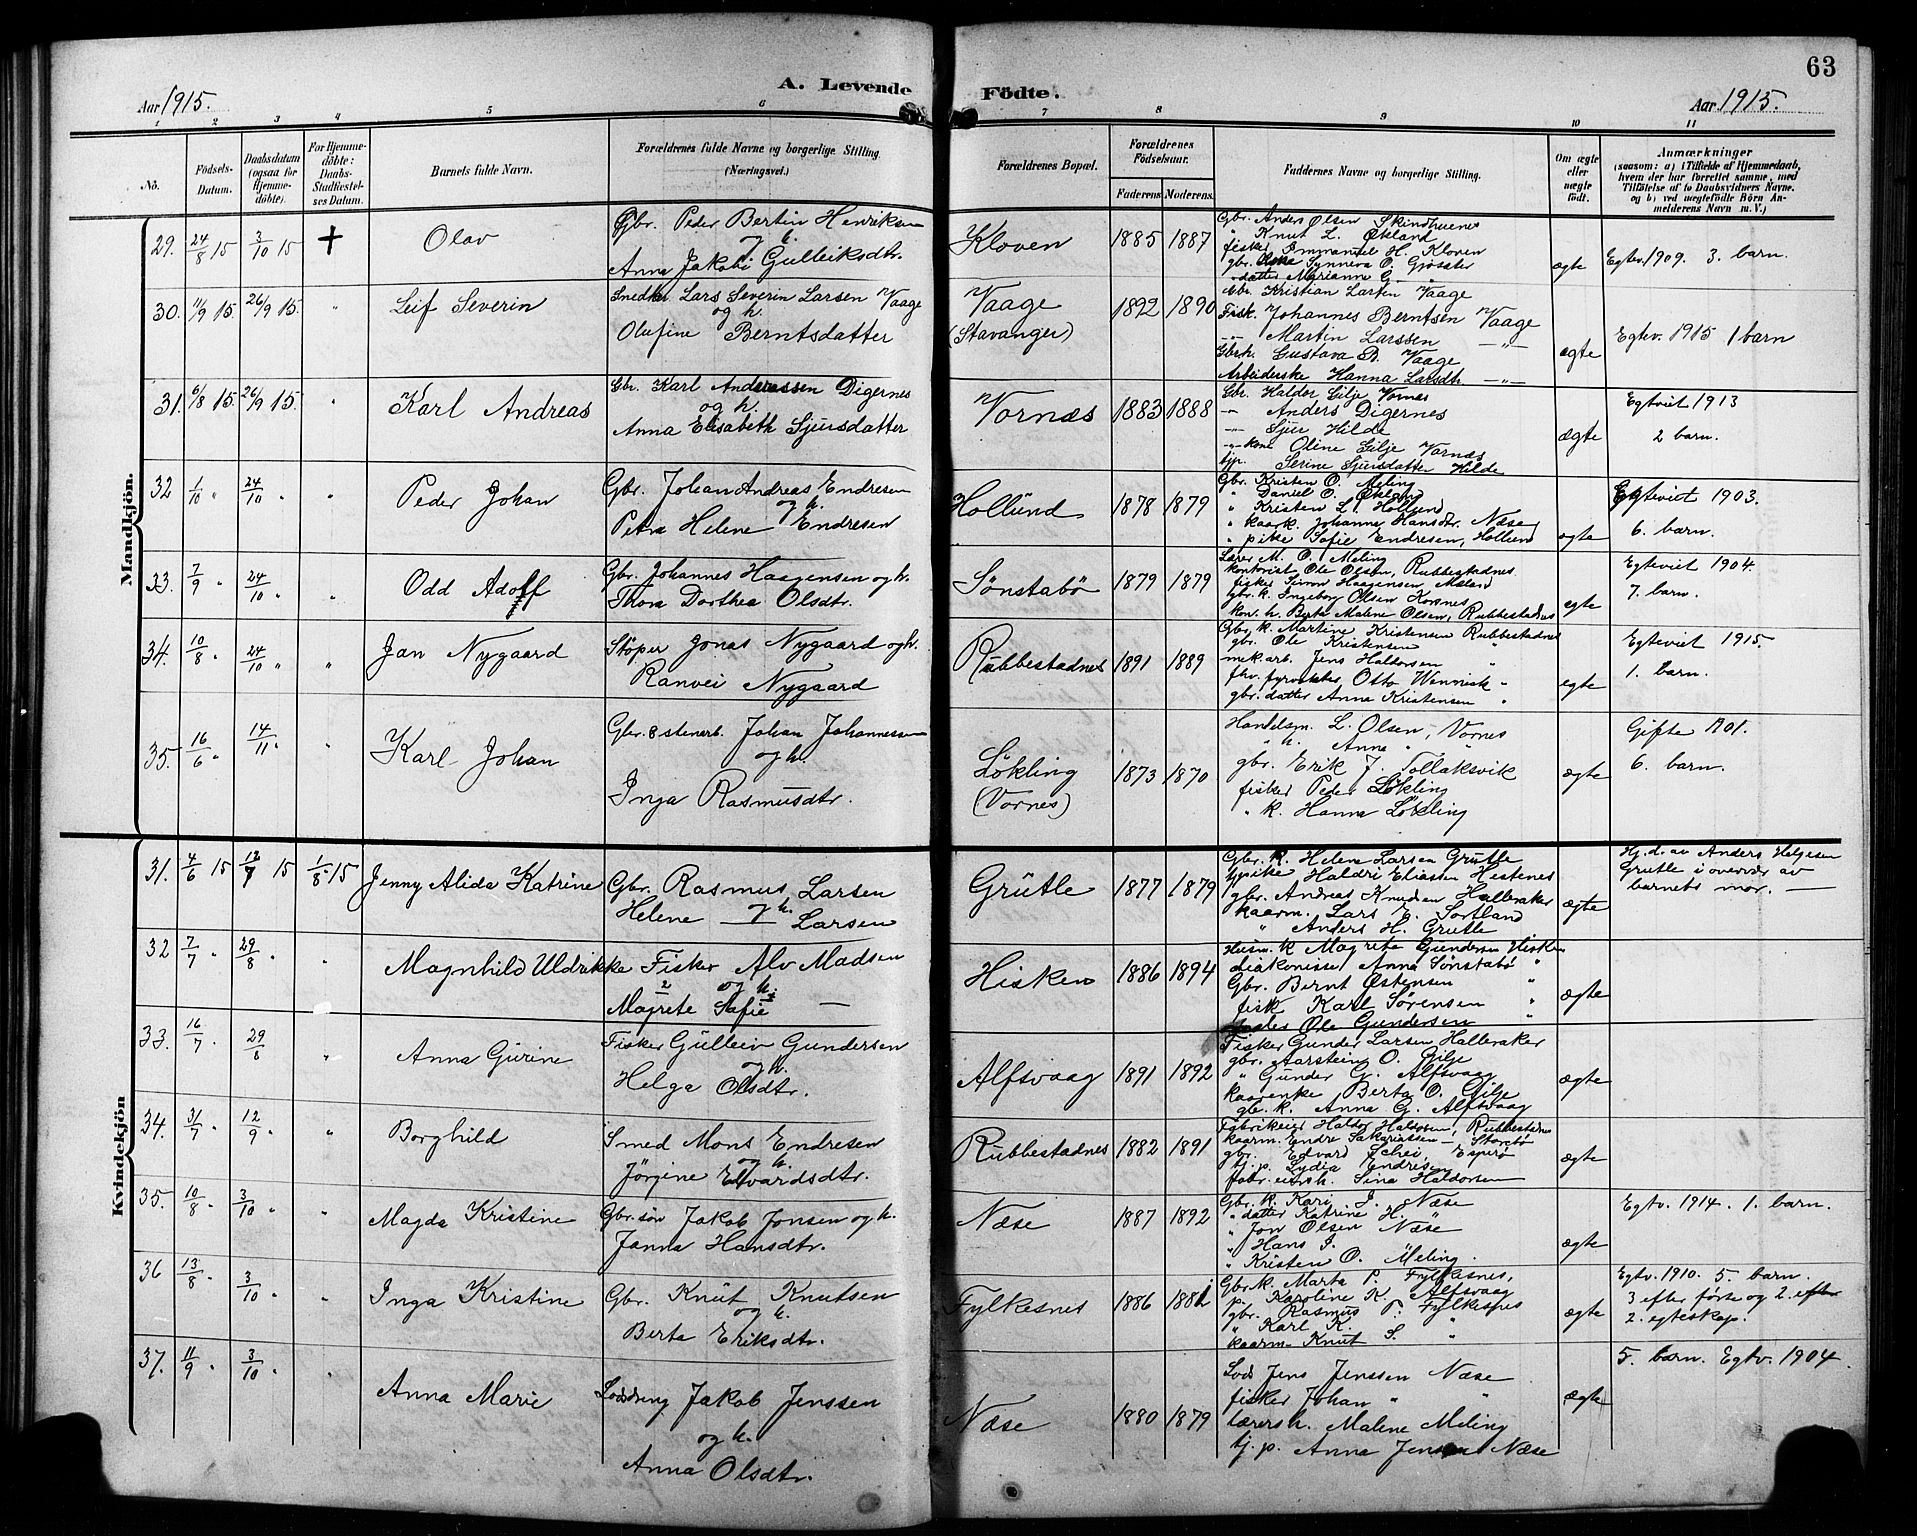 63
Aar 1915.
A. Levende
Födte.
Aar 1915.
1 2 3 4 5 6 7 8 9 10 11
No.
Födsels-
Datum.
Daabsdatum
(ogsaa for
Hjemme-
döbte).
For Hjemme-
döbte:
Daabs-
Stadfæstel-
ses Datum.
Barnets fulde Navn.
Forældrenes fulde Navne og borgerlige Stilling
(Næringsvei.)
Forældrenes Bopæl.
Forældrenes
Födselsaar.
Faderens Moderens.
Faddernes Navne og borgerlige Stilling.
Om ægte
eller
uægte
födt.
Anmærkninger
(saasom: a) i Tilfælde af Hjemmedaab,
hvem der har forrettet samme, med
Tilföielse af to Daabsvidners Navne.
og b) ved uægtefödte Börn An-
melderens Navn m. V.)
Mandkjön.
29. 24/8 15 3/10 15 + Olav
Gbr. Peder Bertin Henriksen
og h.
Anna Jakobi Gulleiksdtr.
Kloven 1885 1887
Gbr. Anders Olsen Skindhuene
" Knut L. Økland
fisker Emmanuel H. Kloven
gbr. Synneva O. Gjøsater
datter Marianne G.
ægte
Egtev. 1909. 3. barn.
30. 11/9 15. 26/9 15. " Leif Severin
Snedker Lars Severin Larsen Vaage
og h.
Olufine Berntsdatter
Vaage
(Stavanger)
1892 1890
Gbr. Kristian Larsen Vaage
Fisk. Johannes Berntsen Vaage
-"- Martin Larssen -"-
Gbrh. Gustava B. Vaage
Arbeiderske Hanna Larsdtr -"-
ægte
Egtev. 1915 1 barn
31. 6/8 15. 26/9 15. " Karl Andreas
Gbr. Karl Anderssen Digernes
og h.
Anna Elisabeth Sjursdatter
Vornæs 1883 1888
Gbr. Haldor Gilje Vornæs
-"- Anders Digernes
-"- Sjur Hilde
-"- kone Oline Gilje Vornæs
tjp. Serine Sjursdatter Hilde
ægte
Egtviet 1913
2 barn.
32 1/10 " 24/10 " " Peder Johan
Gbr. Johan Andreas Endresen
og h.
Petra Helene Endresen
Hollund 1878 1879
Gbr. Kristen O. Meling
" Daniel O. Økland
" Kristen L. Hollund
" kaark. Johanna Hansdtr. Næse
" pike Sofie Endresen, Hollund
egte
Egteviet 1903.
6. barn.
33. 7/9 " 24/10 " " Odd Adolf
Gbr. Johannes Haagensen og h.
Thora Dorthea Olsdtr.
Sønstabø 1879 1879
Lærer M. O. Meling
kontorist Ole Olsen, Rubbestadnes
fisker Simon Haagensen Mæland
gbr. k. Ingeborg Olsen Kornes
kon. h. Berta Malene Olsen, Rubbestadnes
egte
Egteviet 1904.
7. barn.
34. 10/8 " 24/10 " " Jan Nygaard
Støper Jonas Nygaard og h.
Ranvei Nygaard
Rubbestadnes 1891 1889
Gbr. k. Martine Kristensen Rubbestadnes
gbr. Ole Kristensen "
mek. arb. Jens Haldorsen "
fhv. fyrvokter Otto Wennick "
gbr. datter Anna Kristensen "
egte
Egteviet 1915.
1. barn.
35. 16/6 " 14/11 " " Karl Johan
Gbr. & stenarb. Johan Johannessen
og h.
Inga Rasmusdtr.
Løkling
(Vornes)
1873 1870
Handelsm. L. Olsen, Vornes
" h. Anna " "
gbr. Erik J. Tollaksvik
fisker Peder Løkling
" k. Hanna Løkling
ægte
Gifte 1901.
6. barn.
Kvindekjön
31. 4/6 15 12/7 15 1/8 15 Jenny Alida Katrine
Gbr. Rasmus Larsen
og h.
Helene Larsen
Grutle 1877 1879
Gbr. k. Helene Larsen Grutle
pike Haldri Eliassen Hestenes
gbr. Andreas Knudsen Halleraker
kaarm. Lars E. Sortland
" Anders H. Grutle
ægte
Hj. d. av Anders Helgesen
Grutle i overvær av
barnets mor. —
32 7/7 " 29/8 " " Magnhild Uldrikke
Fisker Alv Madsen
og h.
Magrete Sofie —
Hisken 1886 1894
Husm. k Magrete Gundersen Hisken
diakonisse Anna Sønstabø "
Gbr. Bernt Østensen "
fisk Karl Sørensen "
fisker Ole Gundersen "
ægte
33. 16/7 " 29/8 " Anna Gurine
Fisker Gulleiv Gundersen
og h.
Helga Olsdtr.
Alfsvaag 1891 1892
Fisker Gunder Larsen Halleraker
gbr. Aarstein O. Gilje
" Gunder G. Alfsvaag
kaarenke Berta O. Gilje
gbr. k. Anna G. Alfsvaag
ægte
34. 31/7 " 12/9 " " Borghild
Smed Mons Endresen
og h.
Jørgine Edvardsdtr.
Rubbestadnes 1882 1891
Fabrikeier Haldor Haldorsen, Rubbestadnes
kaarm. Endre Sakariassen —, Storebø
gbr. Edvard Schei, Esperø
tj. p. Lydia Endresen
fabr. eiersh. Sina Haldorsen
ægte
35. 10/8 " 3/10 " " Magda Kristine
Gbr. søn Jakob Jonsen og h.
Janna Hansdtr.
Næse 1887 1892
Gbr. k. Kari J. Næse
" datter Katrine H. "
" Jon Olsen Næse
" Hans J.
" Kristen O. Meling.
ægte
Egtv. 1914. 1. barn.
36 13/8 " 3/10 " " Inga Kristine
Gbr. Knut Knutsen
og h.
Berta Eriksdtr.
Fylkesnes 1886 1881
Gbr. k. Marta P. Fylkesnes,
p. Karoline K. Alfsvaag
gbr. Rasmus P. Fylkesnes
" Karl K. "
kaarm. Knut S. "
ægte
Egtv. 1910. 5. barn.
3 efter første og 2. efter
2. egteskap.
37. 11/9 " 3/10 " " Anna Marie
Lodsdreng Jakob Jenssen
og h.
Anna Olsdtr.
Næse 1880 1879
Lods Jens Jenssen Næse
fisker Johan " "
lærersh. Malene Meling
tj. p. Anna Jensen Næse
ægte
5. barn. Egtv. 1904.